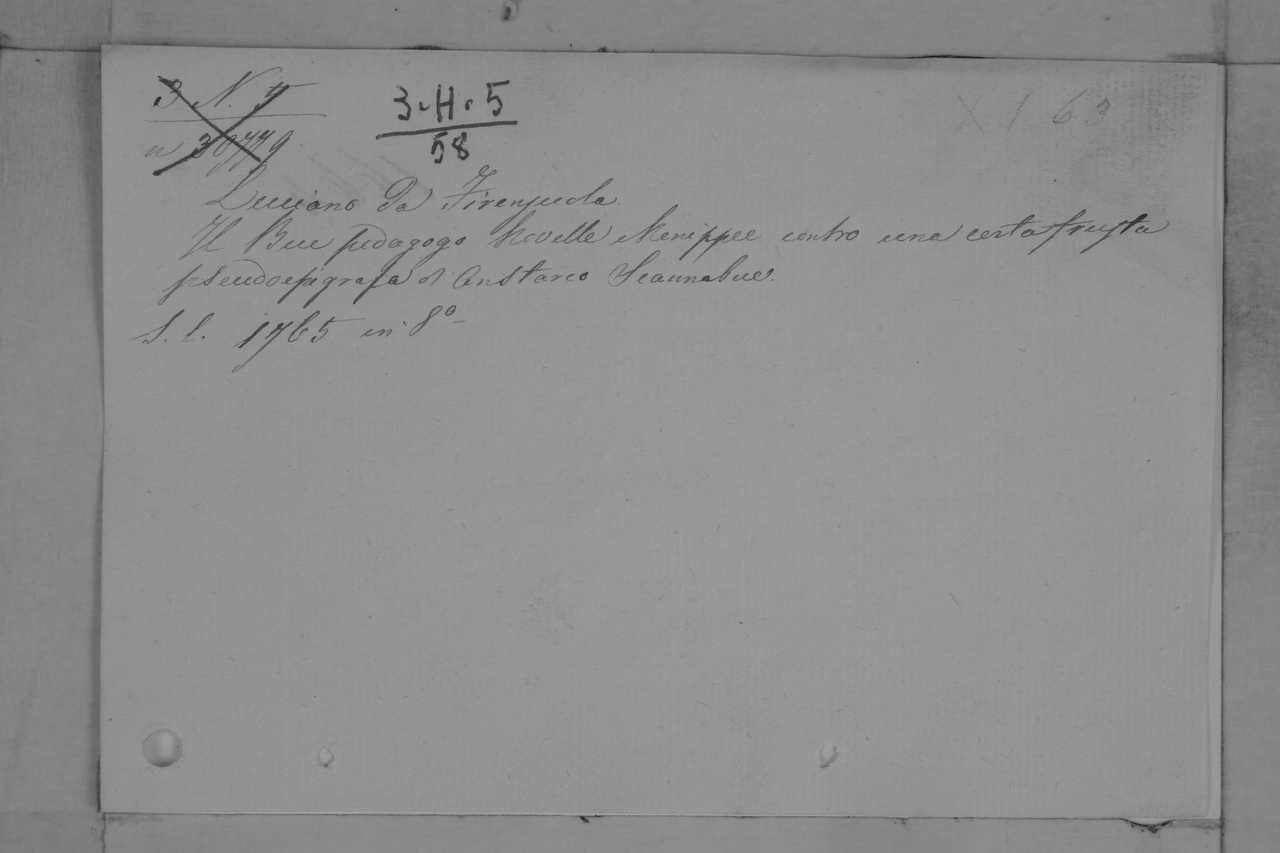 3 N. 4
3·H·5
58
Luciano Da Firenzuola
Il Bue pedagogo Novelle Menippee contro una certa frusta
pseudoepigrafa di Aristarco Scannabue.
S. l. 1765 in 8º